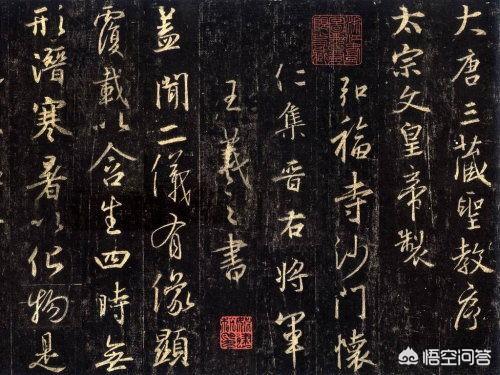 大唐三藏聖教序
太宗文皇帝製
弘福寺沙門懷
仁集晉右將軍
王羲之書
蓋聞二儀有像顯
覆載以含生四時無
形潛寒暑以化物是
悟空问答